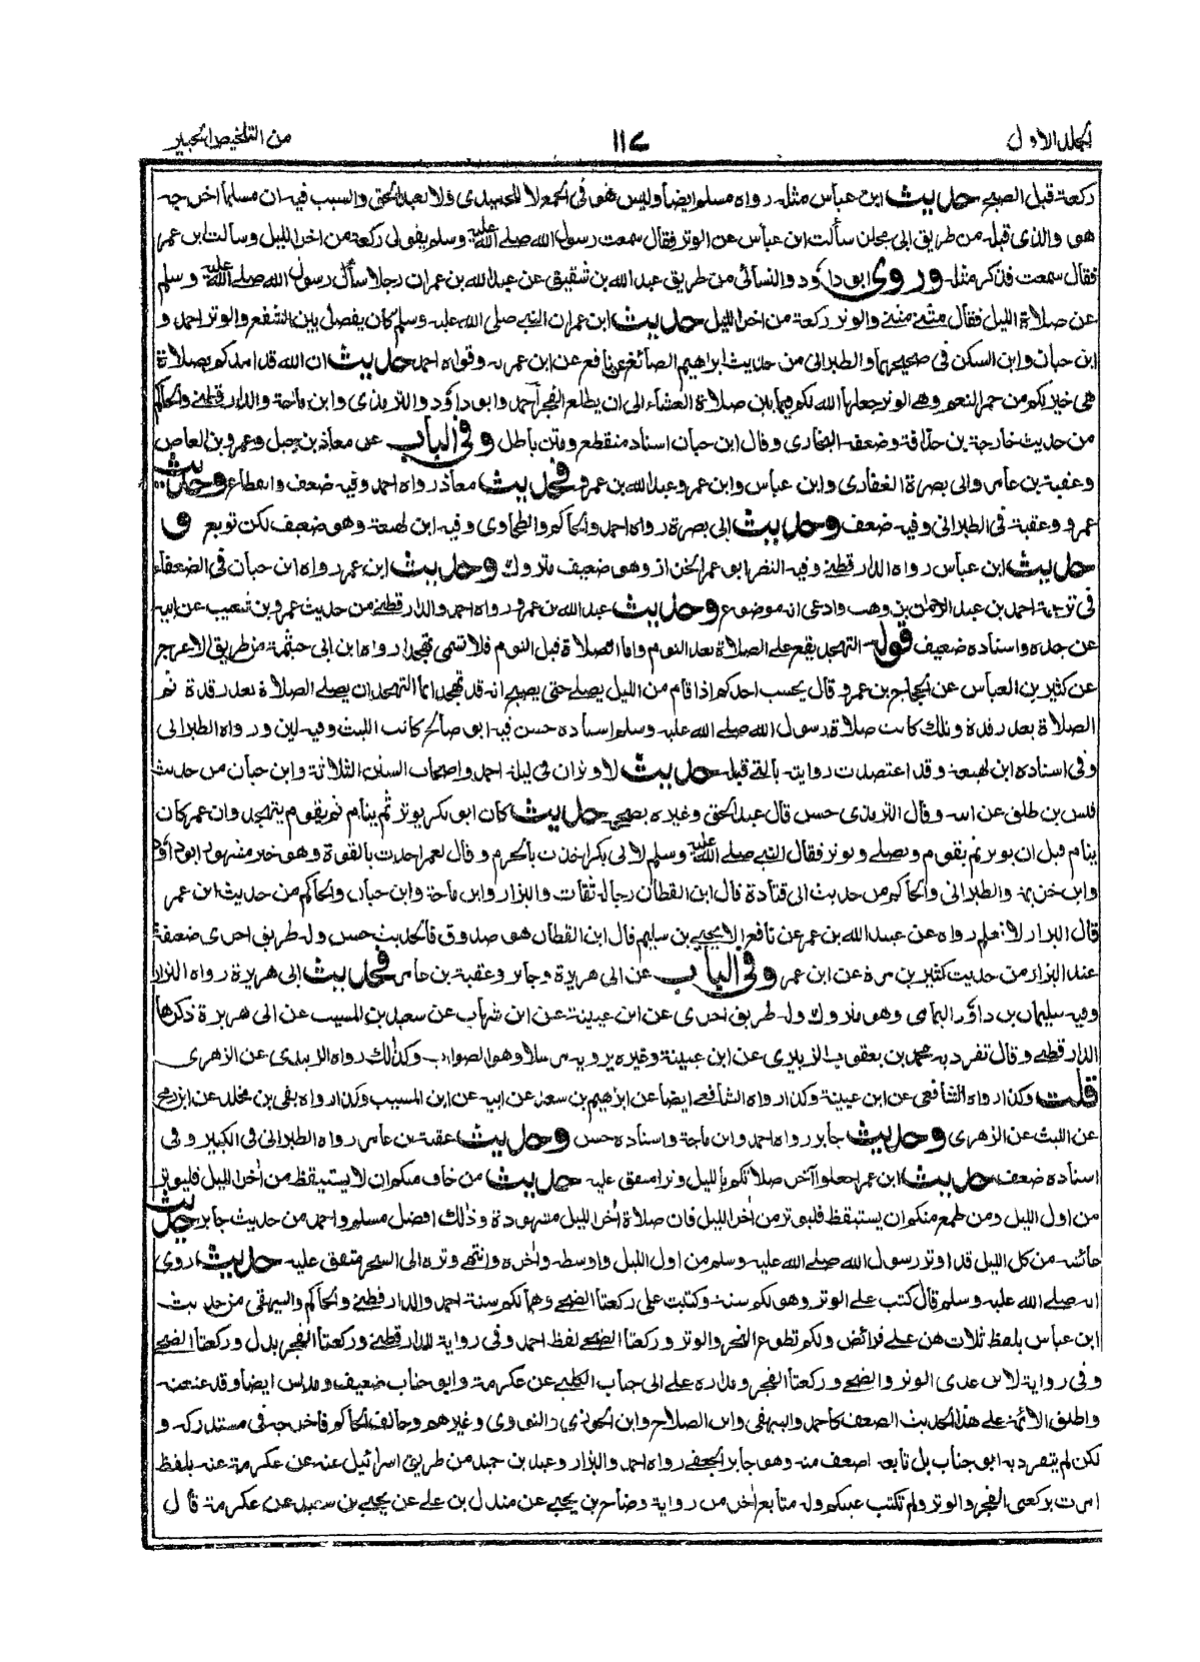 المجلد الاول
١١٧
من التلخيص الحبير
ركعة قبل الصبح حديث ابن عباس مثله رواه مسلم ايضا وليس هو في الجمع لا للحميدى ولا لعبد الحق والسبب فيه ان مسلما اخرجه
هو والذى قبله من طريق ابى مجلز سألت ابن عباس عن الوتر فقال سمعت رسول الله صلى الله عليه وسلم يقول ركعة من اخر الليل وسألت ابن عمر
فقال سمعت فذكر مثله وروى ابو داؤد والنسائى من طريق عبد الله بن شقيق عن عبد الله بن عمر ان رجلا سأل رسول الله صلى الله عليه وسلم
عن صلاة الليل فقال مثنى مثنى والوتر ركعة من اخر الليل حديث ابن عمر ان النبى صلى الله عليه وسلم كان يفصل بين الشفع والوتر احمد و
ابن حبان وابن السكن فى صحيحيهما والطبرانى من حديث ابراهيم الصائغ عن نافع عن ابن عمر به وقواه احمد حديث ان الله قد امدكم بصلاة
هى خير لكم من حمر النعم وهى الوتر جعلها الله لكم فيما بين صلاة العشاء الى ان يطلع الفجر احمد وابو داؤد والترمذى وابن ماجة والدارقطنى والحاكم
من حديث خارجة بن حذافة وضعفه البخارى وقال ابن حبان اسناد منقطع ومتن باطل وفى الباب عن معاذ بن جبل وعمرو بن العاص
وعقبة بن عامر وابى بصرة الغفارى وابن عباس وابن عمر وعبد الله بن عمرو فحديث معاذ رواه احمد وفيه ضعف وانقطاع وحديث
عمرو وعقبة فى الطبرانى وفيه ضعف وحديث ابى بصرة رواه احمد والحاكم والطحاوى وفيه ابن لهيعة وهو ضعيف لكن توبع و
حديث ابن عباس رواه الدارقطنى وفيه النضر ابو عمر الخزاز وهو ضعيف متروك وحديث ابن عمر رواه ابن حبان فى الضعفاء
فى ترجمة احمد بن عبد الرحمان بن وهب وادعى انه موضوع وحديث عبد الله بن عمرو رواه احمد والدارقطنى من حديث عمرو بن شعيب عن ابيه
عن جده واسناده ضعيف قوله التهجد يقع على الصلاة بعد النوم واما الصلاة قبل النوم فلا تسمى تهجدا رواه ابن ابى خيثمة من طريق الاعرج
عن كثير بن العباس عن الحجاج بن عمرو قال يحسب احدكم اذا قام من الليل يصلى حتى يصبح انه قد تهجد انما التهجد ان يصلى الصلاة بعد رقدة ثم
الصلاة بعد رقدة وتلك كانت صلاة رسول الله صلى الله عليه وسلم اسناده حسن فيه ابو صالح كاتب الليث وفيه لين ورواه الطبرانى
وفى اسناده ابن لهيعة وقد اعتضدت روايته بالتى قبله حديث لا وتران فى ليلة احمد واصحاب السنن الثلاثة وابن حبان من حديث
قيس بن طلق عن ابيه وقال الترمذى حسن قال عبد الحق وغيره يصححه حديث كان ابو بكر يوتر ثم ينام ثم يقوم يتهجد وان عمر كان
ينام قبل ان يوتر ثم يقوم ويصلى ويوتر فقال النبى صلى الله عليه وسلم لابى بكر اخذت بالحزم وقال لعمر اخذت بالقوة وهو خبر مشهور ابو داؤد
وابن خزيمة والطبرانى والحاكم من حديث ابى قتادة قال ابن القطان رجاله ثقات والبزار وابن ماجة وابن حبان والحاكم من حديث ابن عمر
قال البزار لا نعلم رواه عن عبيد الله بن عمر عن نافع الا يحيى بن سليم قال ابن القطان هو صدوق فالحديث حسن وله طريق اخرى ضعيفة
عند البزار من حديث كثير بن مرة عن ابن عمر وفى الباب عن ابى هريرة وجابر وعقبة بن عامر فحديث ابى هريرة رواه البزار
وفيه سليمان بن داؤد اليمامى وهو متروك وله طريق اخرى عن ابن عيينة عن ابن شهاب عن سعيد بن المسيب عن ابى هريرة ذكرها
الدارقطنى وقال تفرد به محمد بن يعقوب الزبيرى عن ابن عيينة وغيره يرويه مرسلا وهو الصواب وكذلك رواه الزبيدى عن الزهرى
قلت وكذا رواه الشافعى عن ابن عيينة وكذا رواه الشافعى ايضا عن ابراهيم بن سعد عن ابيه عن ابن المسيب وكذا رواه بقى بن مخلد عن ابن رمح
عن الليث عن الزهرى وحديث جابر رواه احمد وابن ماجة واسناده حسن وحديث عقبة بن عامر رواه الطبرانى فى الكبير وفى
اسناده ضعف حديث ابن عمر اجعلوا آخر صلاتكم بالليل وترا متفق عليه حديث من خاف منكم ان لا يستيقظ من اخر الليل فليوتر
من اول الليل ومن طمع منكم ان يستيقظ فليوتر من اخر الليل فان صلاة اخر الليل مشهودة وذلك افضل مسلم واحمد من حديث جابر حديث
عائشة من كل الليل قد اوتر رسول الله صلى الله عليه وسلم من اول الليل واوسطه واخره وانتهى وتره الى السحر متفق عليه حديث روى
انه صلى الله عليه وسلم قال كتب على الوتر وهو لكم سنة وكتبت على ركعتا الضحى وهما لكم سنة احمد والدارقطنى والحاكم والبيهقى من حديث
ابن عباس بلفظ ثلاث هن على فرائض ولكم تطوع النحر والوتر وركعتا الضحى لفظ احمد وفى رواية للدارقطنى وركعتا الفجر بدل وركعتا الضحى
وفى رواية لابن عدى الوتر والضحى وركعتا الفجر ومداره على ابى جناب الكلبى عن عكرمة وابو جناب ضعيف ومدلس ايضا وقد عنعنه
واطلق الائمة على هذا الحديث الضعف كاحمد والبيهقى وابن الصلاح وابن الجوزى والنووى وغيرهم وخالف الحاكم فاخرجه فى مستدركه و
لكن لم يتفرد به ابو جناب بل تابعه اضعف منه وهو جابر الجعفى رواه احمد والبزار وعبد بن حميد من طريق اسرائيل عنه عن عكرمة عنه بلفظ
امرت بركعتى الفجر والوتر ولم تكتب عليكم وله متابع اخر من رواية وضاح بن يحيى عن مندل بن على عن يحيى بن سعيد عن عكرمة قال